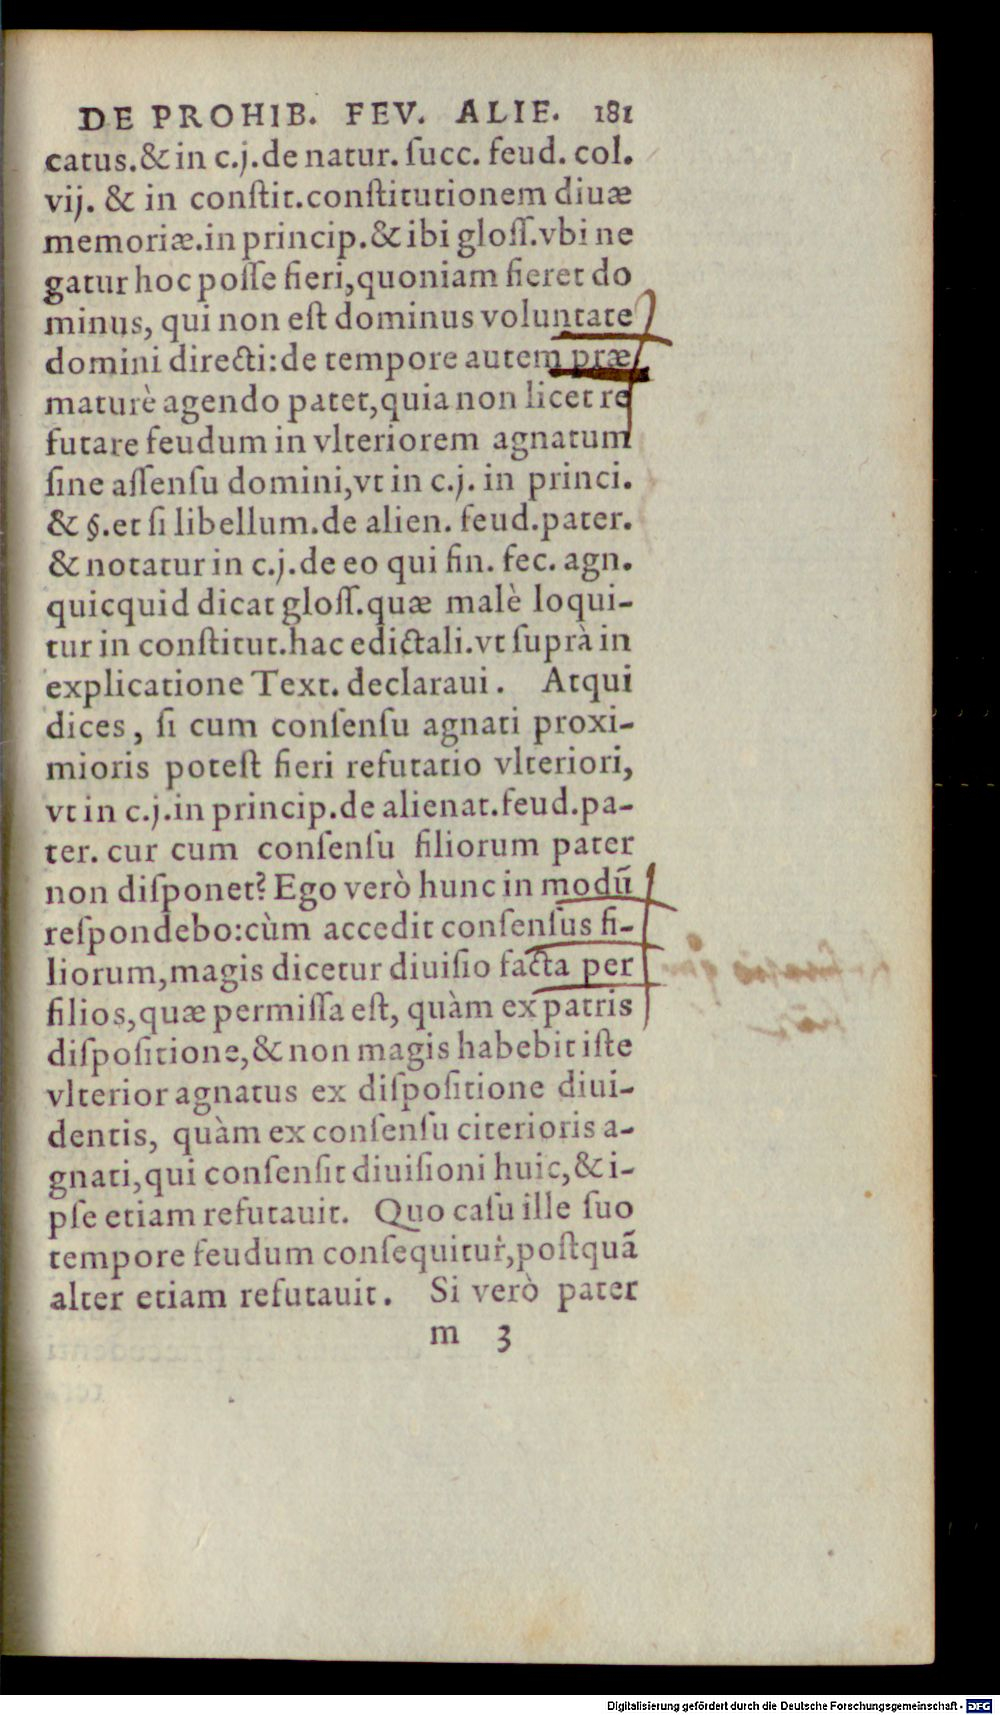 DE PROHIB. FEV. ALIE. 181
catus.& in c.j.de natur. ſucc. feud. col.
vij. & in conſtit.conſtitutionem diuæ
memoriæ.in princip.& ibi gloſſ.vbi ne
gatur hoc poſſe fieri,quoniam fieret do
minus, qui non eſt dominus voluntate
domini directi:de tempore autem præ
maturè agendo patet,quia non licet re
futare feudum in vlteriorem agnatum
ſine aſſenſu domini,vt in c.j. in princi.
& §.et ſi libellum.de alien. feud.pater.
& notatur in c.j.de eo qui fin. fec. agn.
quicquid dicat gloſſ.quæ malè loqui-
tur in conſtitut.hac edictali.vt ſuprà in
explicatione Text. declaraui. Atqui
dices, ſi cum conſenſu agnati proxi-
mioris poteſt fieri refutatio vlteriori,
vt in c.j.in princip.de alienat.feud.pa-
ter. cur cum conſenſu filiorum pater
non diſponet? Ego verò hunc in modū
reſpondebo:cùm accedit conſenſus fi-
liorum,magis dicetur diuiſio facta per
filios,quæ permiſſa eſt, quàm ex patris
diſpoſitione,& non magis habebit iſte
vlterior agnatus ex diſpoſitione diui-
dentis, quàm ex conſenſu citerioris a-
gnati,qui conſenſit diuiſioni huic,& i-
pſe etiam refutauit. Quo caſu ille ſuo
tempore feudum conſequitur,poſtquā
alter etiam refutauit. Si verò pater
m 3
Digitalisierung gefördert durch die Deutsche Forschungsgemeinschaft - DFG